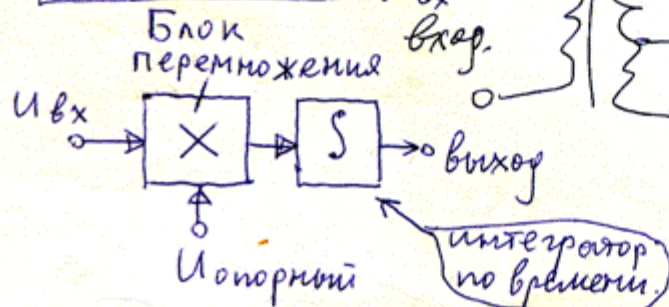 Блок
перемножения
вход.
U вх
×
∫
выход
U опорный
интегратор
по времени.